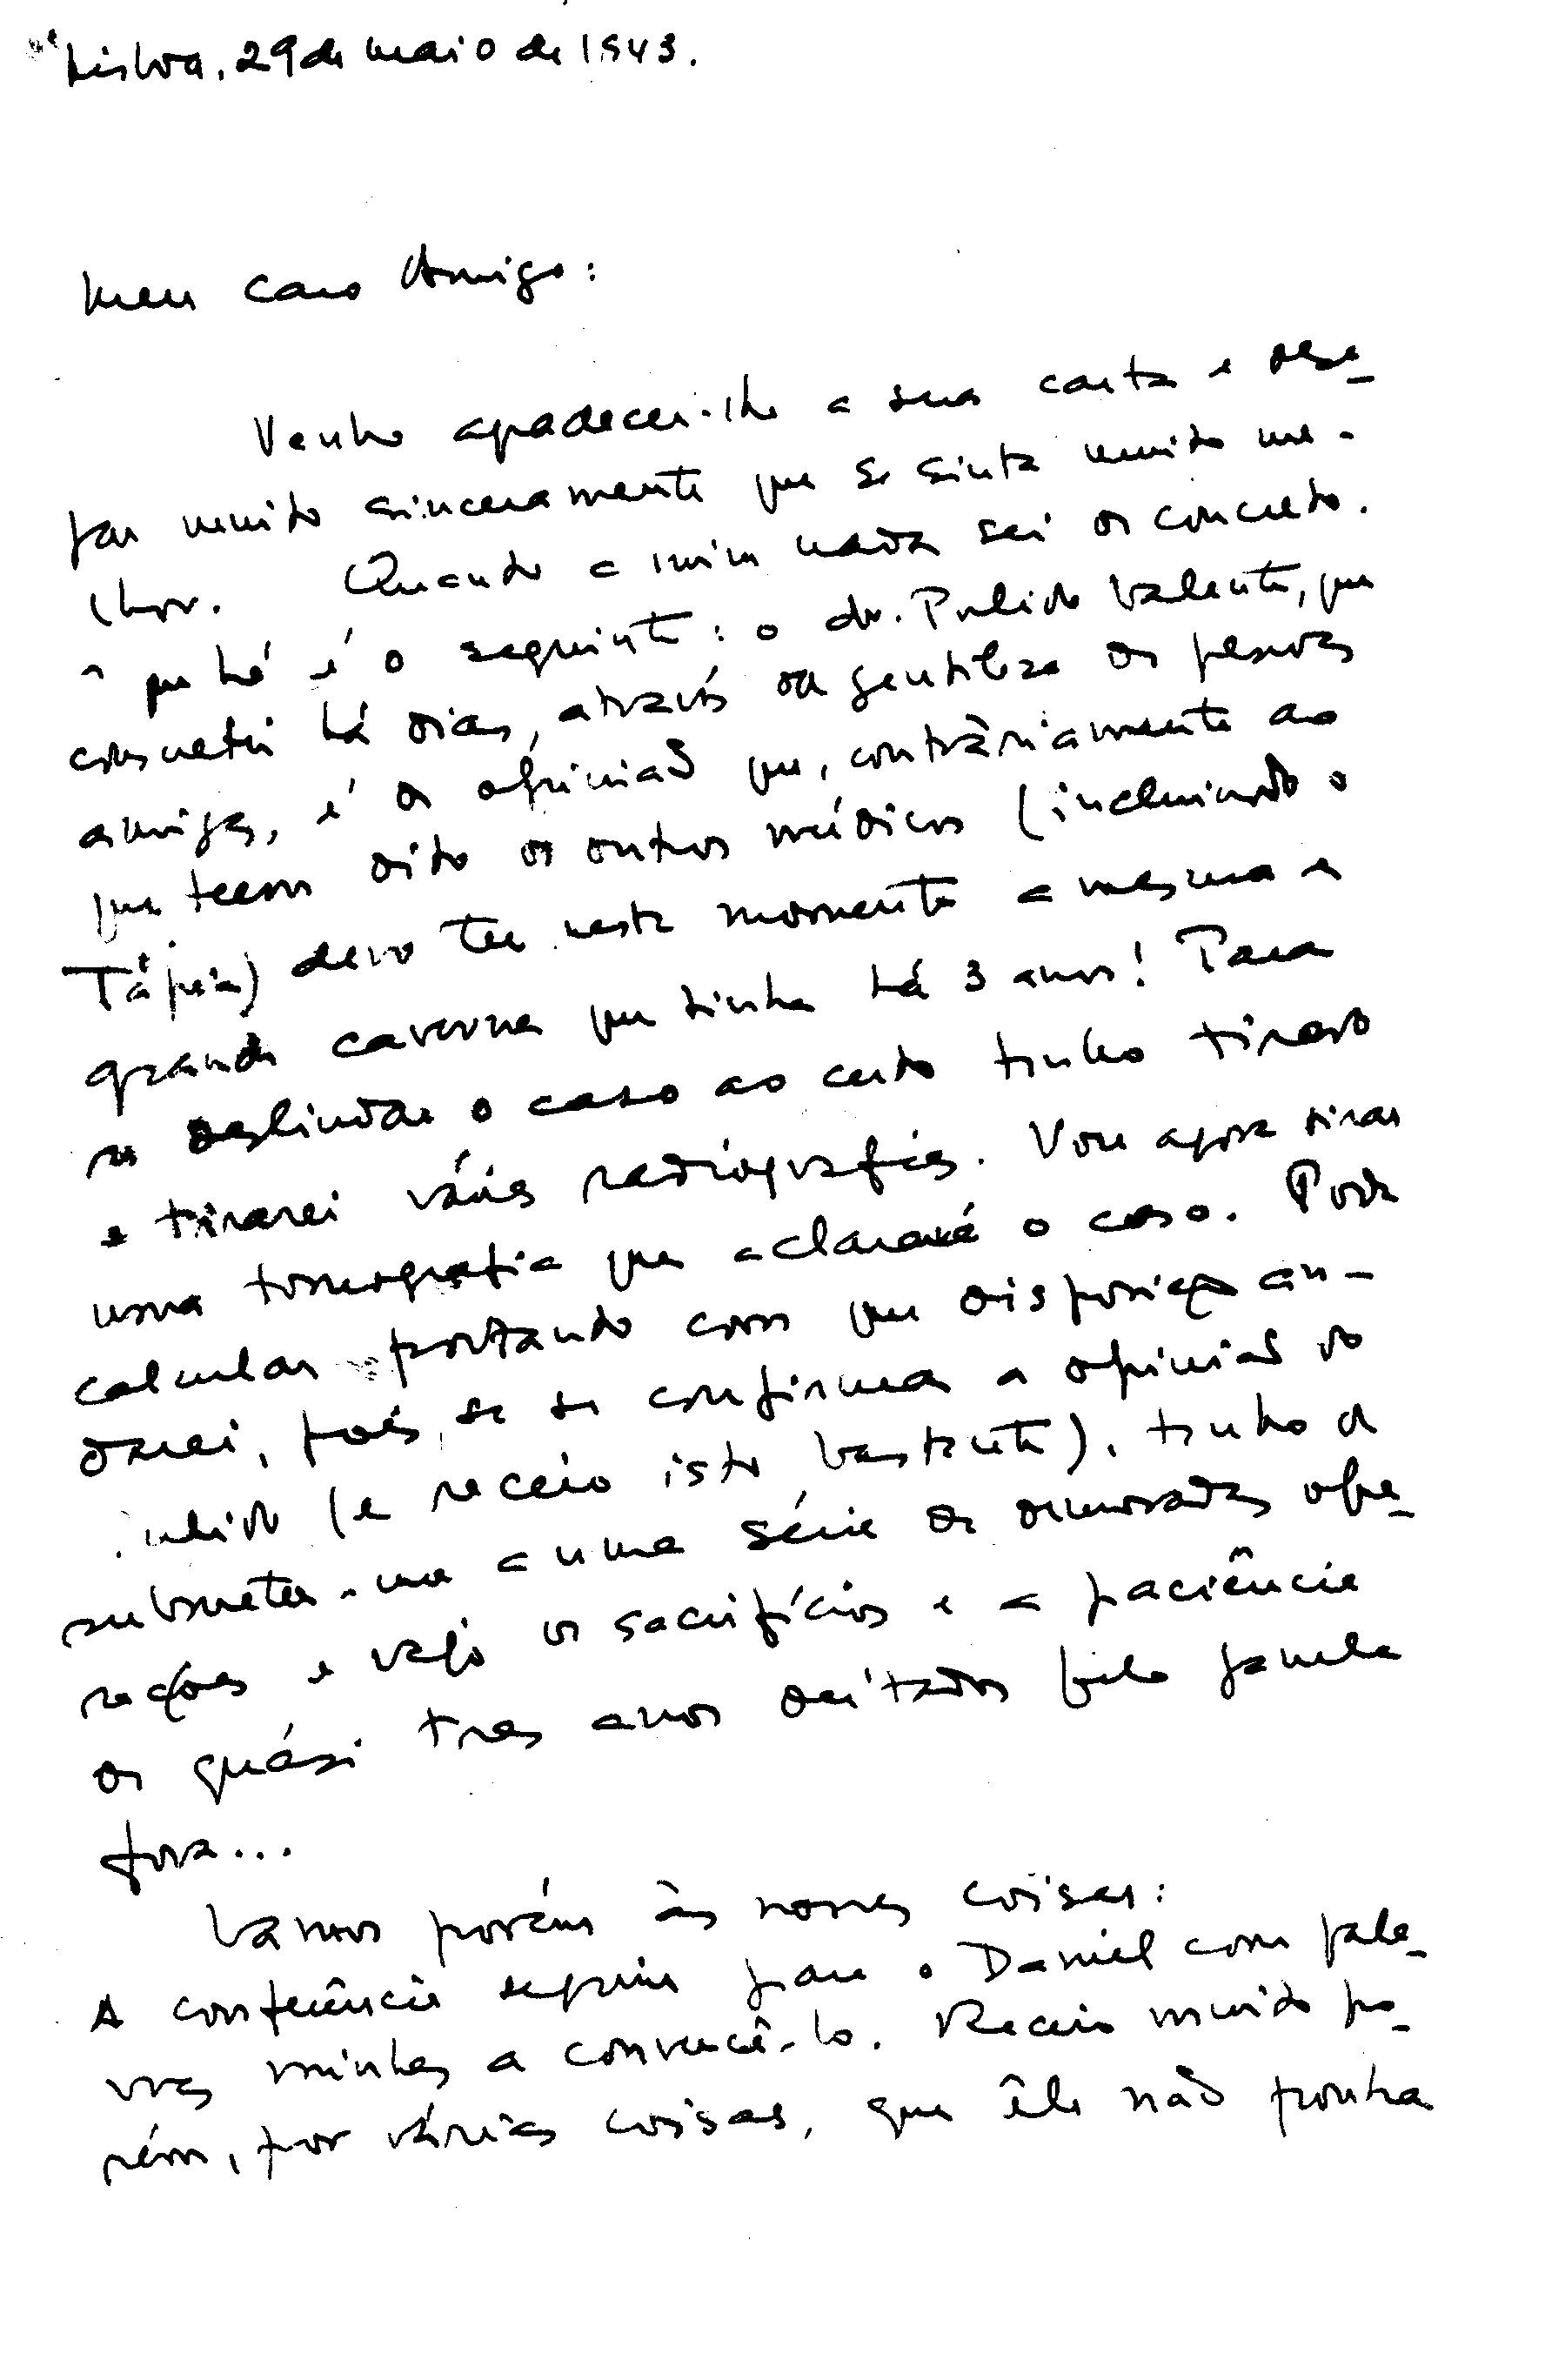 Lisboa, 29 de maio de 1943.
Meu caro Amigo:
Venho agradecer-lhe a sua carta e dese-
jar muito sinceramente que se sinta muito me-
lhor. Quanto a mim nada sei de concreto.
O que há é o seguinte: o dr. Pulido Valente, que
consultei há dias, através da gentileza de pessoas
amigas, é de opinião que, contràriamente ao
que teem dito os outros médicos (incluindo o
Tápia) devo ter neste momento a mesma e
grande caverna que tinha há 3 anos! Para
se deslindar o caso ao certo tenho tirado
e tirarei várias radiografias. Vou agora tirar
uma tomografia que aclarará o caso. Pode
calcular portanto com que disposição an-
darei, pois, se se confirmar a opinião do
Pulido (e receio isto bastante), tenho de
submeter-me a uma série de demoradas ope-
rações e vejo os sacrifícios e a paciência
de quási tres anos deitados pela janela
fora...
Vamos porém às nossas coisas:
A conferência seguiu para o Daniel com pala-
vras minhas a convencê-lo. Receio muito po-
rém, por várias coisas, que êle não ponha